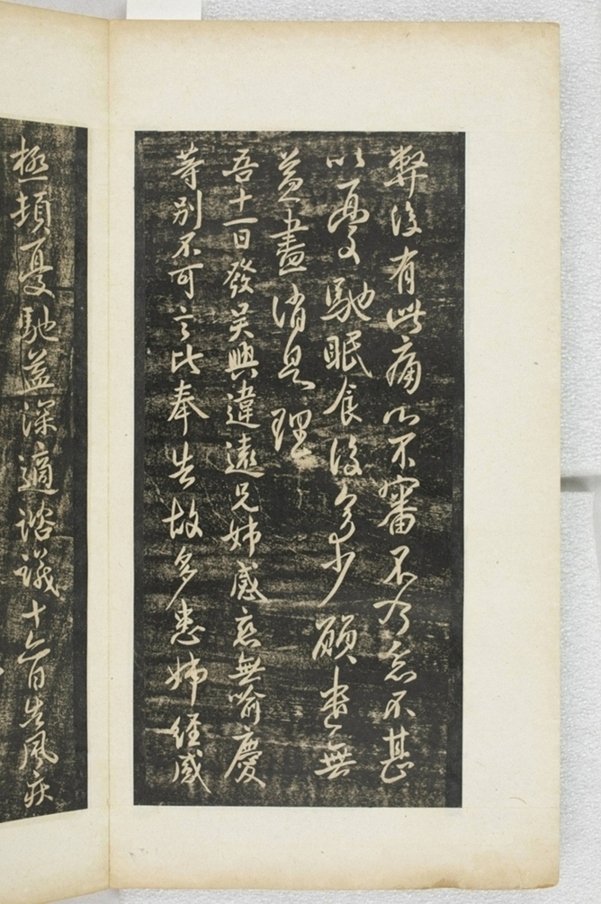 弊復有此痛心不審不乃惡不甚
以憂馳眠食復多少願盡無
益盡消息理
吾十一日發吳興違遠兄姊感戀無喻慶
等別不可言比奉告故多患姊經感
極頓憂馳益深適諮議十六日告風疾